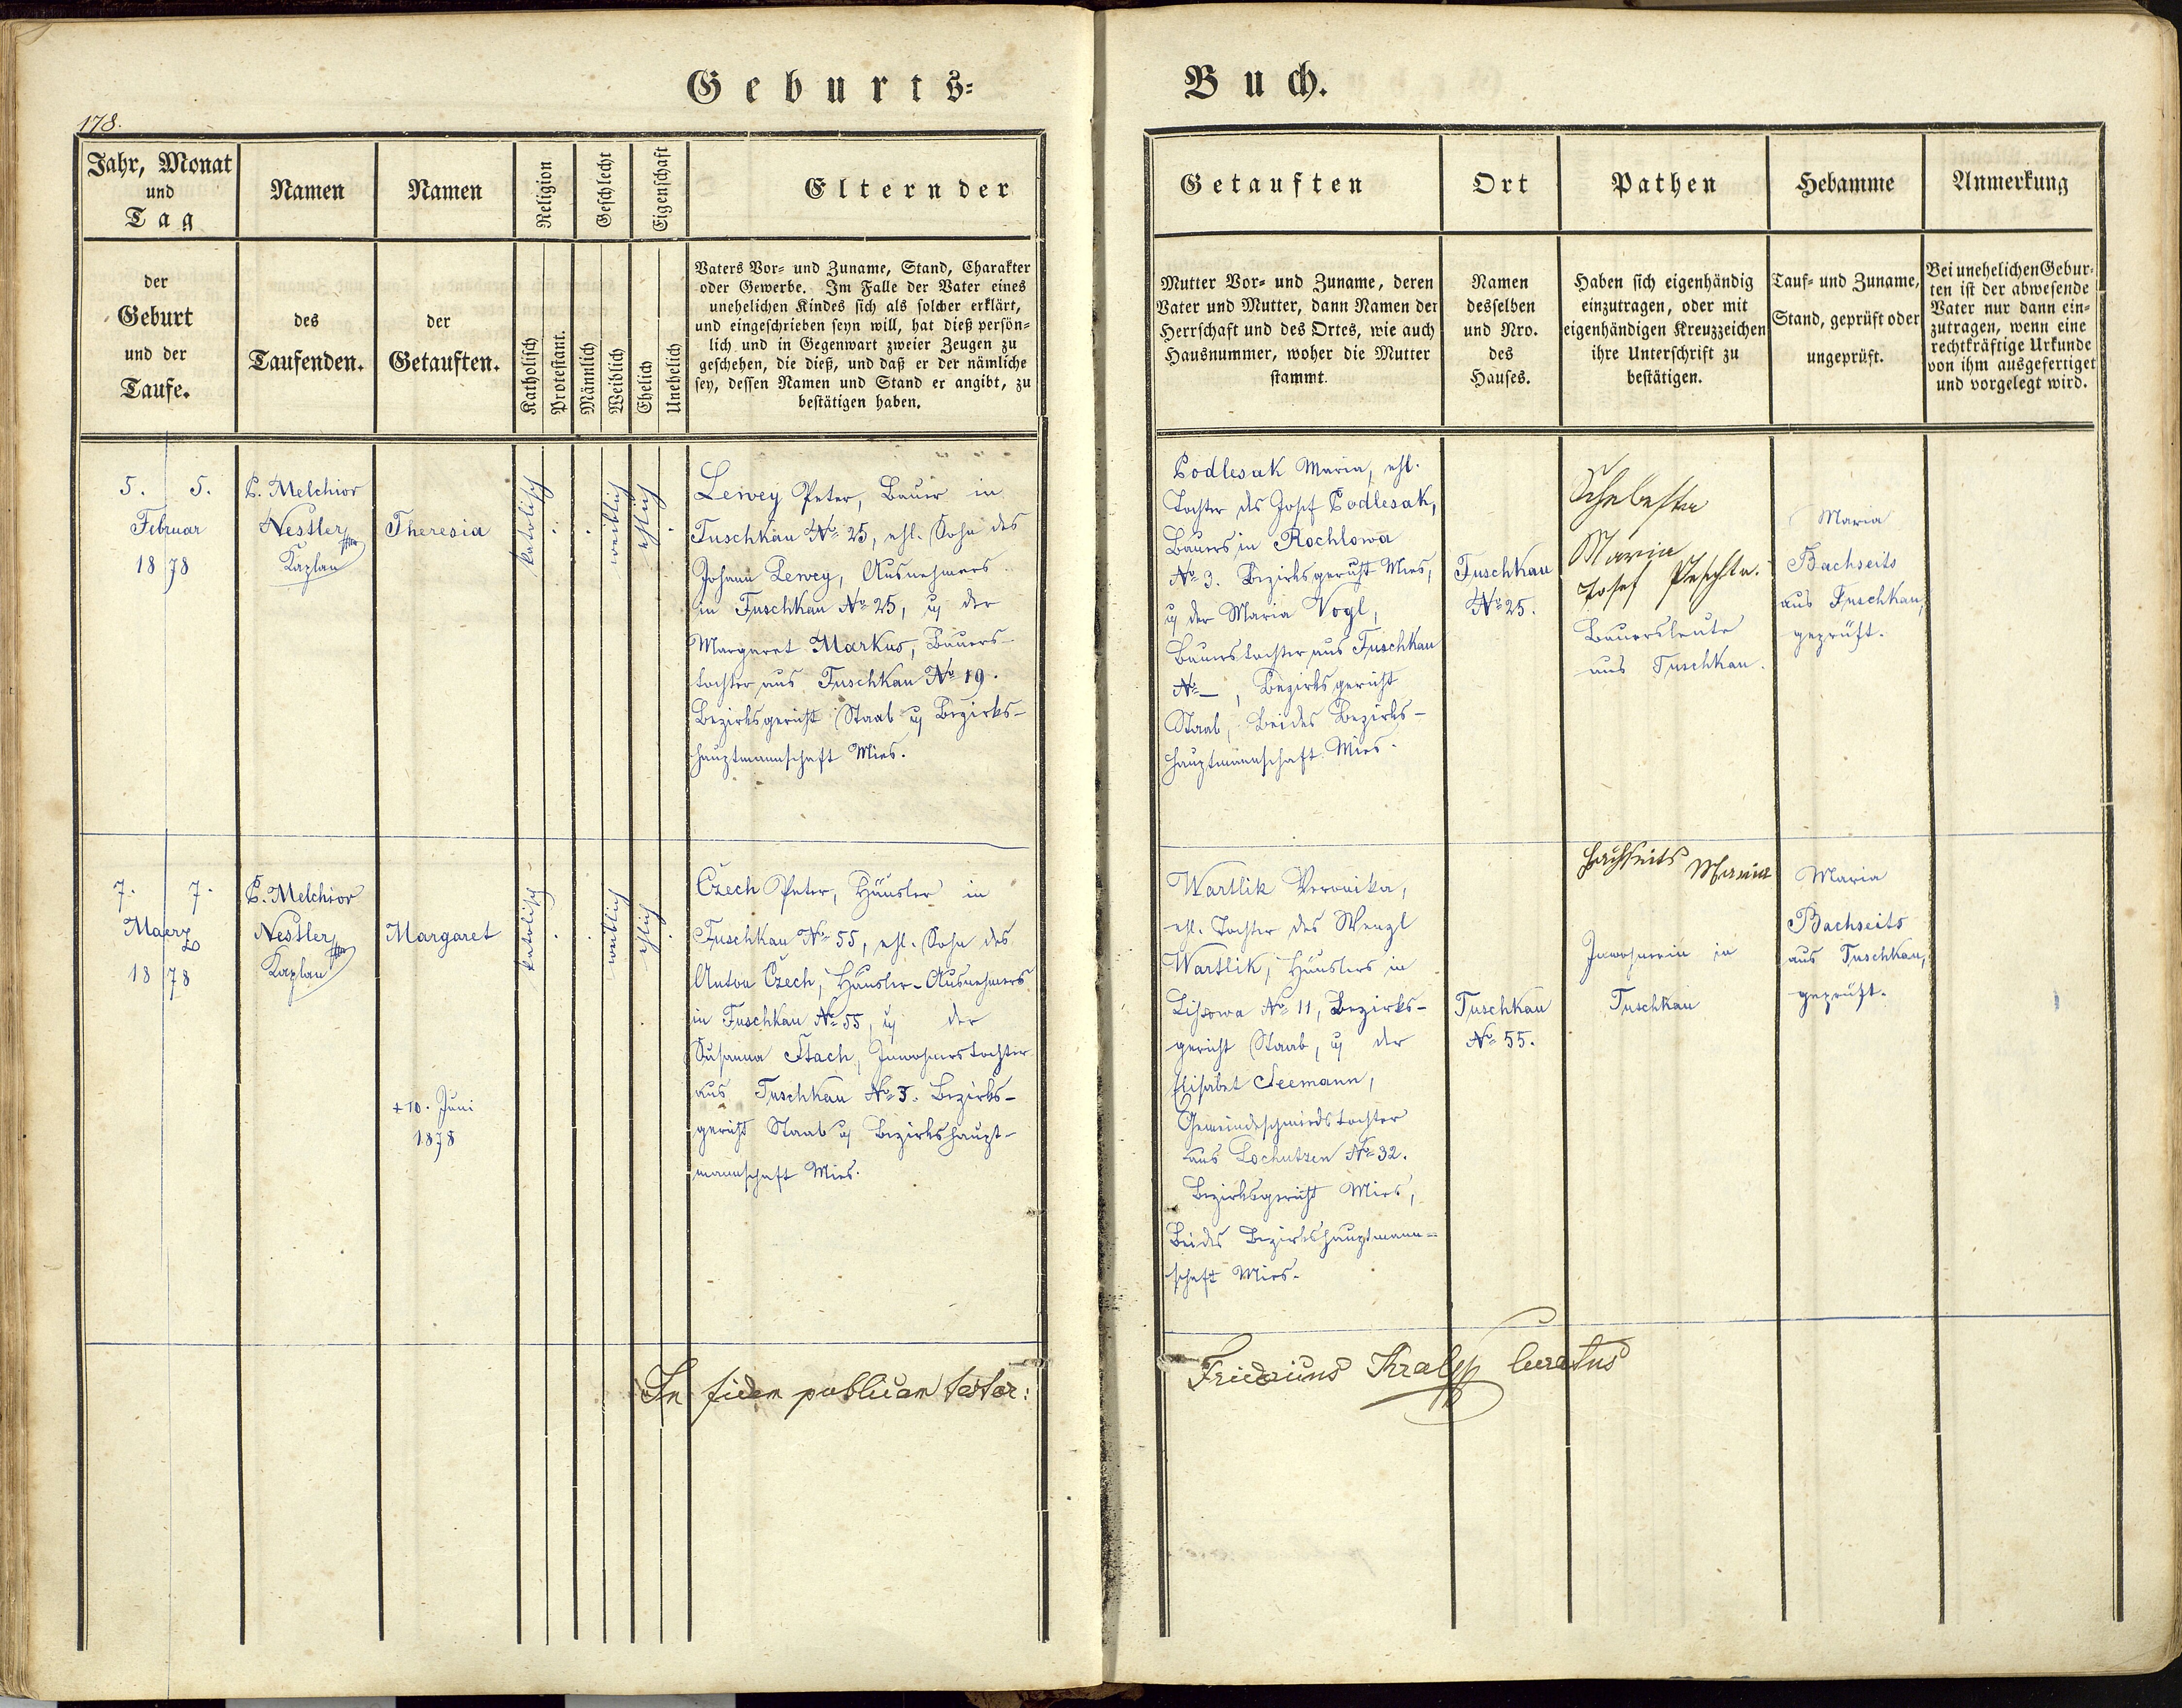 Geburts-
Buch.
178.
Jahr, Monat
und
Tag
der
Geburt
und der
Taufe.
Namen
des
Taufenden.
Namen
der
Getauften.
Religion
Katholisch
Protestant.
Geschlecht
Männlich
Weiblich
Eigenschaft
Ehelich
Unehelich
Eltern der
Vaters Vor- und Zuname, Stand, Charakter
oder Gewerbe. Im Falle der Vater eines
unehelichen Kindes sich als solcher erklärt,
und eingeschrieben seyn will, hat dieß persön-
lich und in Gegenwart zweier Zeugen zu
geschehen, die dieß, und daß er der nämliche
sey, dessen Namen und Stand er angibt, zu
bestätigen haben.
Getauften
Mutter Vor- und Zuname, deren
Vater und Mutter, dann Namen der
Herrschaft und des Ortes, wie auch
Hausnummer, woher die Mutter
stammt.
Ort
Namen
desselben
und Nro.
des
Hauses.
Pathen
Haben sich eigenhändig
einzutragen, oder mit
eigenhändigen Kreuzzeichen
ihre Unterschrift zu
bestätigen.
Hebamme
Tauf- und Zuname,
Stand, geprüft oder
ungeprüft.
Anmerkung
Bei unehelichen Gebur-
ten ist der abwesende
Vater nur dann ein-
zutragen, wenn eine
rechtkräftige Urkunde
von ihm ausgefertiget
und vorgelegt wird.
5. 5.
Februar
18 78
P. Melchior
Nestler
Kaplan
Theresia
katolisch
weiblich
ehlich
Lewey Peter, Bauer in
Tuschkau No 25, ehl. Sohn des
Johann Lewey, Ausnehmers
in Tuschkau No 25, u der
Margaret Markus, Bauers-
tochter aus Tuschkau No 19.
Bezirksgericht Staab u Bezirks-
hauptmannschaft Mies.
Podlesak Maria, ehl.
Tochter des Josef Podlesak,
Bauers in Rochlowa
No 3. Bezirksgericht Mies,
u der Maria Vogl,
Bauerstochter aus Tuschkau
No —, Bezirksgericht
Staab, Beides Bezirks-
hauptmannschaft Mies.
Tuschkau
No 25.
Schebesta
Maria
Josef Peschta.
Bauersleute
aus Tuschkau.
Maria
Bachseits
aus Tuschkau,
geprüft.
7. 7.
Maerz
18 78
P. Melchior
Nestler
Kaplan
Margaret
+ 10. Juni
1878
katolisch
weiblich
ehlich
Czech Peter, Häusler in
Tuschkau No 55, ehl. Sohn des
Anton Czech, Häusler-Ausnehmers
in Tuschkau No 55, u der
Susanna Stach, Inwohnerstochter
aus Tuschkau No 3. Bezirks-
gericht Staab u Bezirkshaupt-
mannschaft Mies.
Wartlik Veronika,
ehl. Tochter des Wenzl
Wartlik, Häuslers in
Lissowa No 11, Bezirks-
gericht Staab, u der
Elisabet Seemann,
Gemeindeschmiedstochter
aus Lochutzen No 32.
Bezirksgericht Mies,
Beides Bezirkshauptmann-
schaft Mies.
Tuschkau
No 55.
Bachseits Maria
Inwohnerin in
Tuschkau
Maria
Bachseits
aus Tuschkau,
geprüft.
In fidem publicam testor:
Fridericus Kralik Curatus